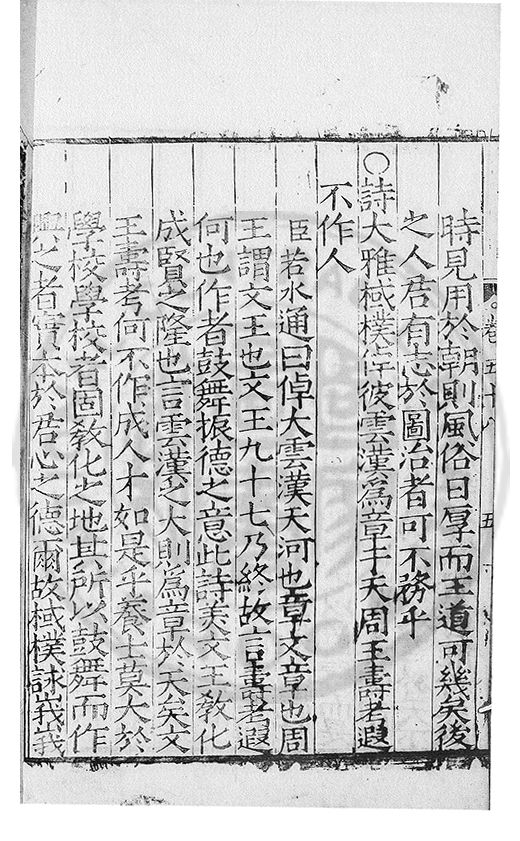 時見用於朝則風俗日厚而王道可幾矣後
之人君有志於圖治者可不務乎
○詩大雅棫樸倬彼雲漢為章于天周王壽考遐
不作人
臣若水通曰倬大雲漢天河也章文章也周
王謂文王也文王九十七乃終故言壽考遐
何也作者鼓舞振德之意此詩美文王教化
成賢之隆也言雲漢之大則為章於天矣文
王壽考何不作成人才如是乎養士莫大於
學校學校者固教化之地其所以鼓舞而作
興之者實本於君心之德爾故棫樸詠峩峩
卷五十八
五